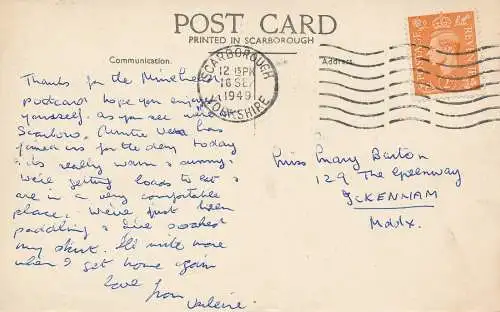 POST CARD
PRINTED IN SCARBOROUGH
Communication.
Address.
SCARBOROUGH
12.15PM
16 SEP
1949
YORKSHIRE
POSTAGE
REVENUE
Thanks for the Minehead
postcard hope you enjoyed
yourself. as you see we're
Scarboro. Auntie Vera has
joined us for the day today
its really warm & sunny.
We're getting loads to eat &
are in a very comfortable
place. We've just been
paddling & I've soaked
my skirt. I'll write more
when I get home again
love from
Valerie.
Miss Mary Barton
129 The Greenway
ICKENHAM
Mddx.